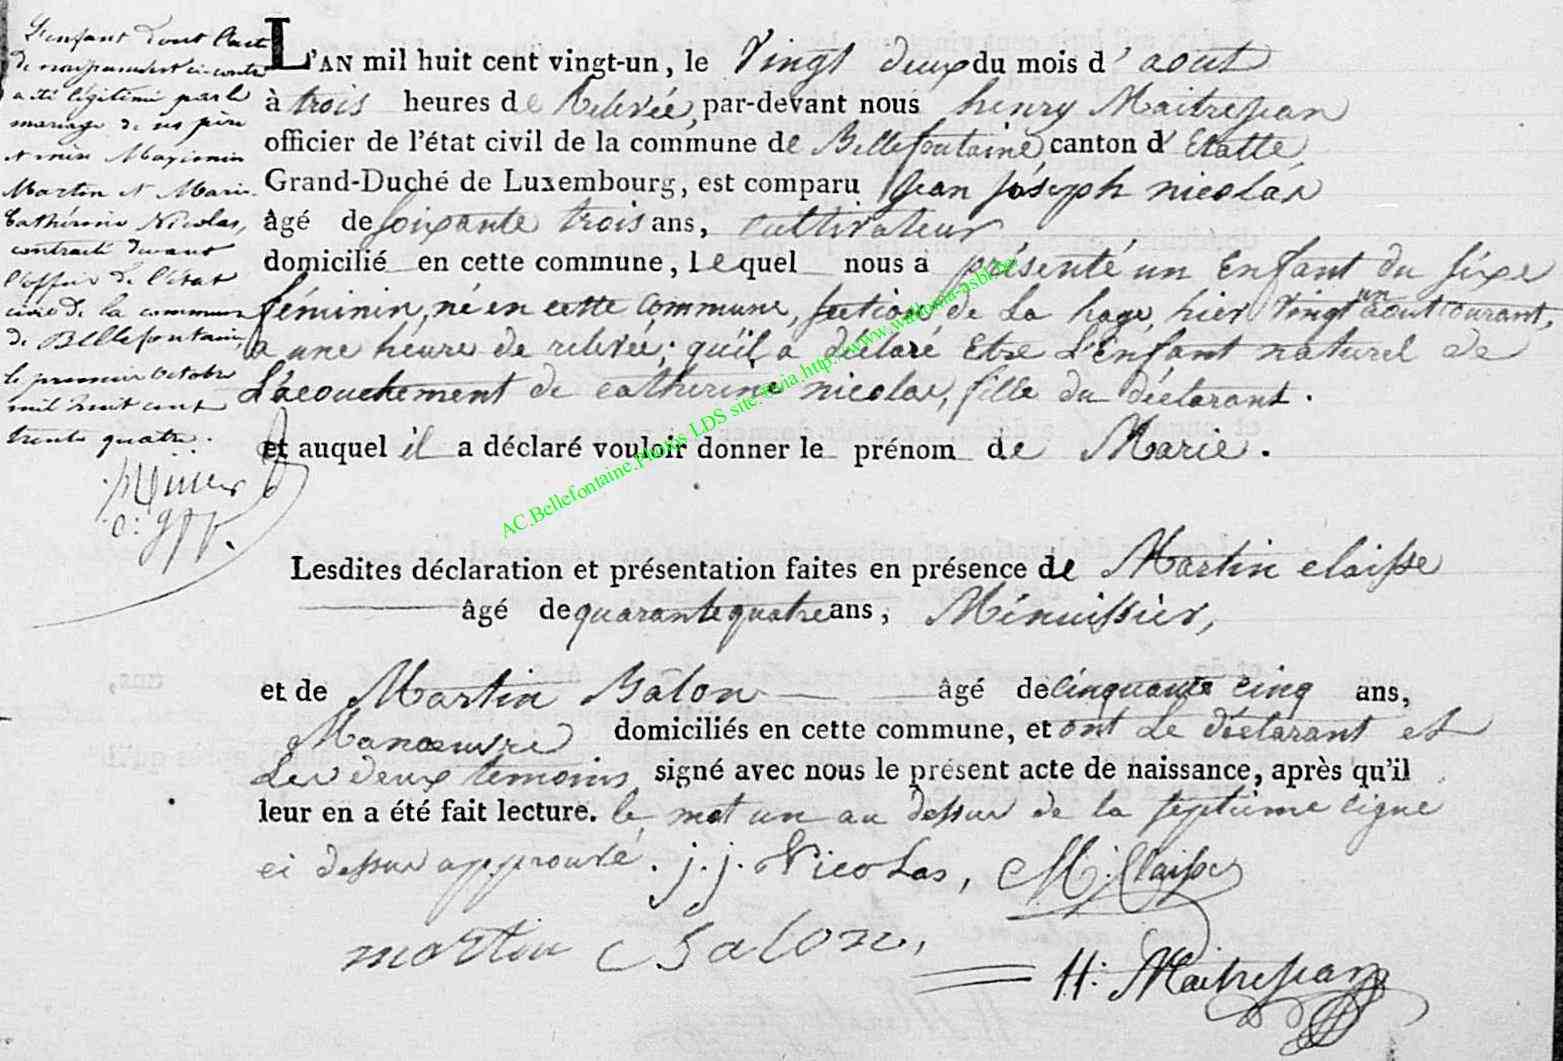 L'enfant dont l'acte
de naissance est ci-contre
a été légitimé par le
mariage de ses père
et mère Maximin
Martin et Marie
Cathérine Nicolas,
contracté devant
l'officier de l'état
civil de la commune
de Bellefontaine,
le premier octobre
mil huit cent
trente quatre.
L'AN mil huit cent vingt-un, le Vingt deux du mois d'aout
à trois heures de Relevée, par-devant nous henry Maitrejean
officier de l'état civil de la commune de Bellefontaine, canton d'Etalle,
Grand-Duché de Luxembourg, est comparu jean joseph nicolas
âgé de soixante trois ans, cultivateur,
domicilié en cette commune, lequel nous a présenté un Enfant du sixe
féminin, né en cette commune, section de La hage, hier vingt un aout courant,
a une heure de relevée; qu'il a déclaré Etre L'Enfant naturel de
L'acouchement de catherine nicolas, fille du déclarant.
et auquel il a déclaré vouloir donner le prénom de Marie.
AC.Bellefontaine.Photos LDS site via http://www.wallonia-asbl.be
Lesdites déclaration et présentation faites en présence de Martin claisse
âgé de quarante quatre ans, Menuissier,
et de Martin Balon âgé de cinquante cinq ans,
Manœuvre domiciliés en cette commune, et ont Le déclarant et
Les deux temoins signé avec nous le présent acte de naissance, après qu'il
leur en a été fait lecture. le mot un au dessus de la septième ligne
ci dessus approuvé. j. j. Nicolas, M. Claisse
martin Balon,
H: Maitrejean